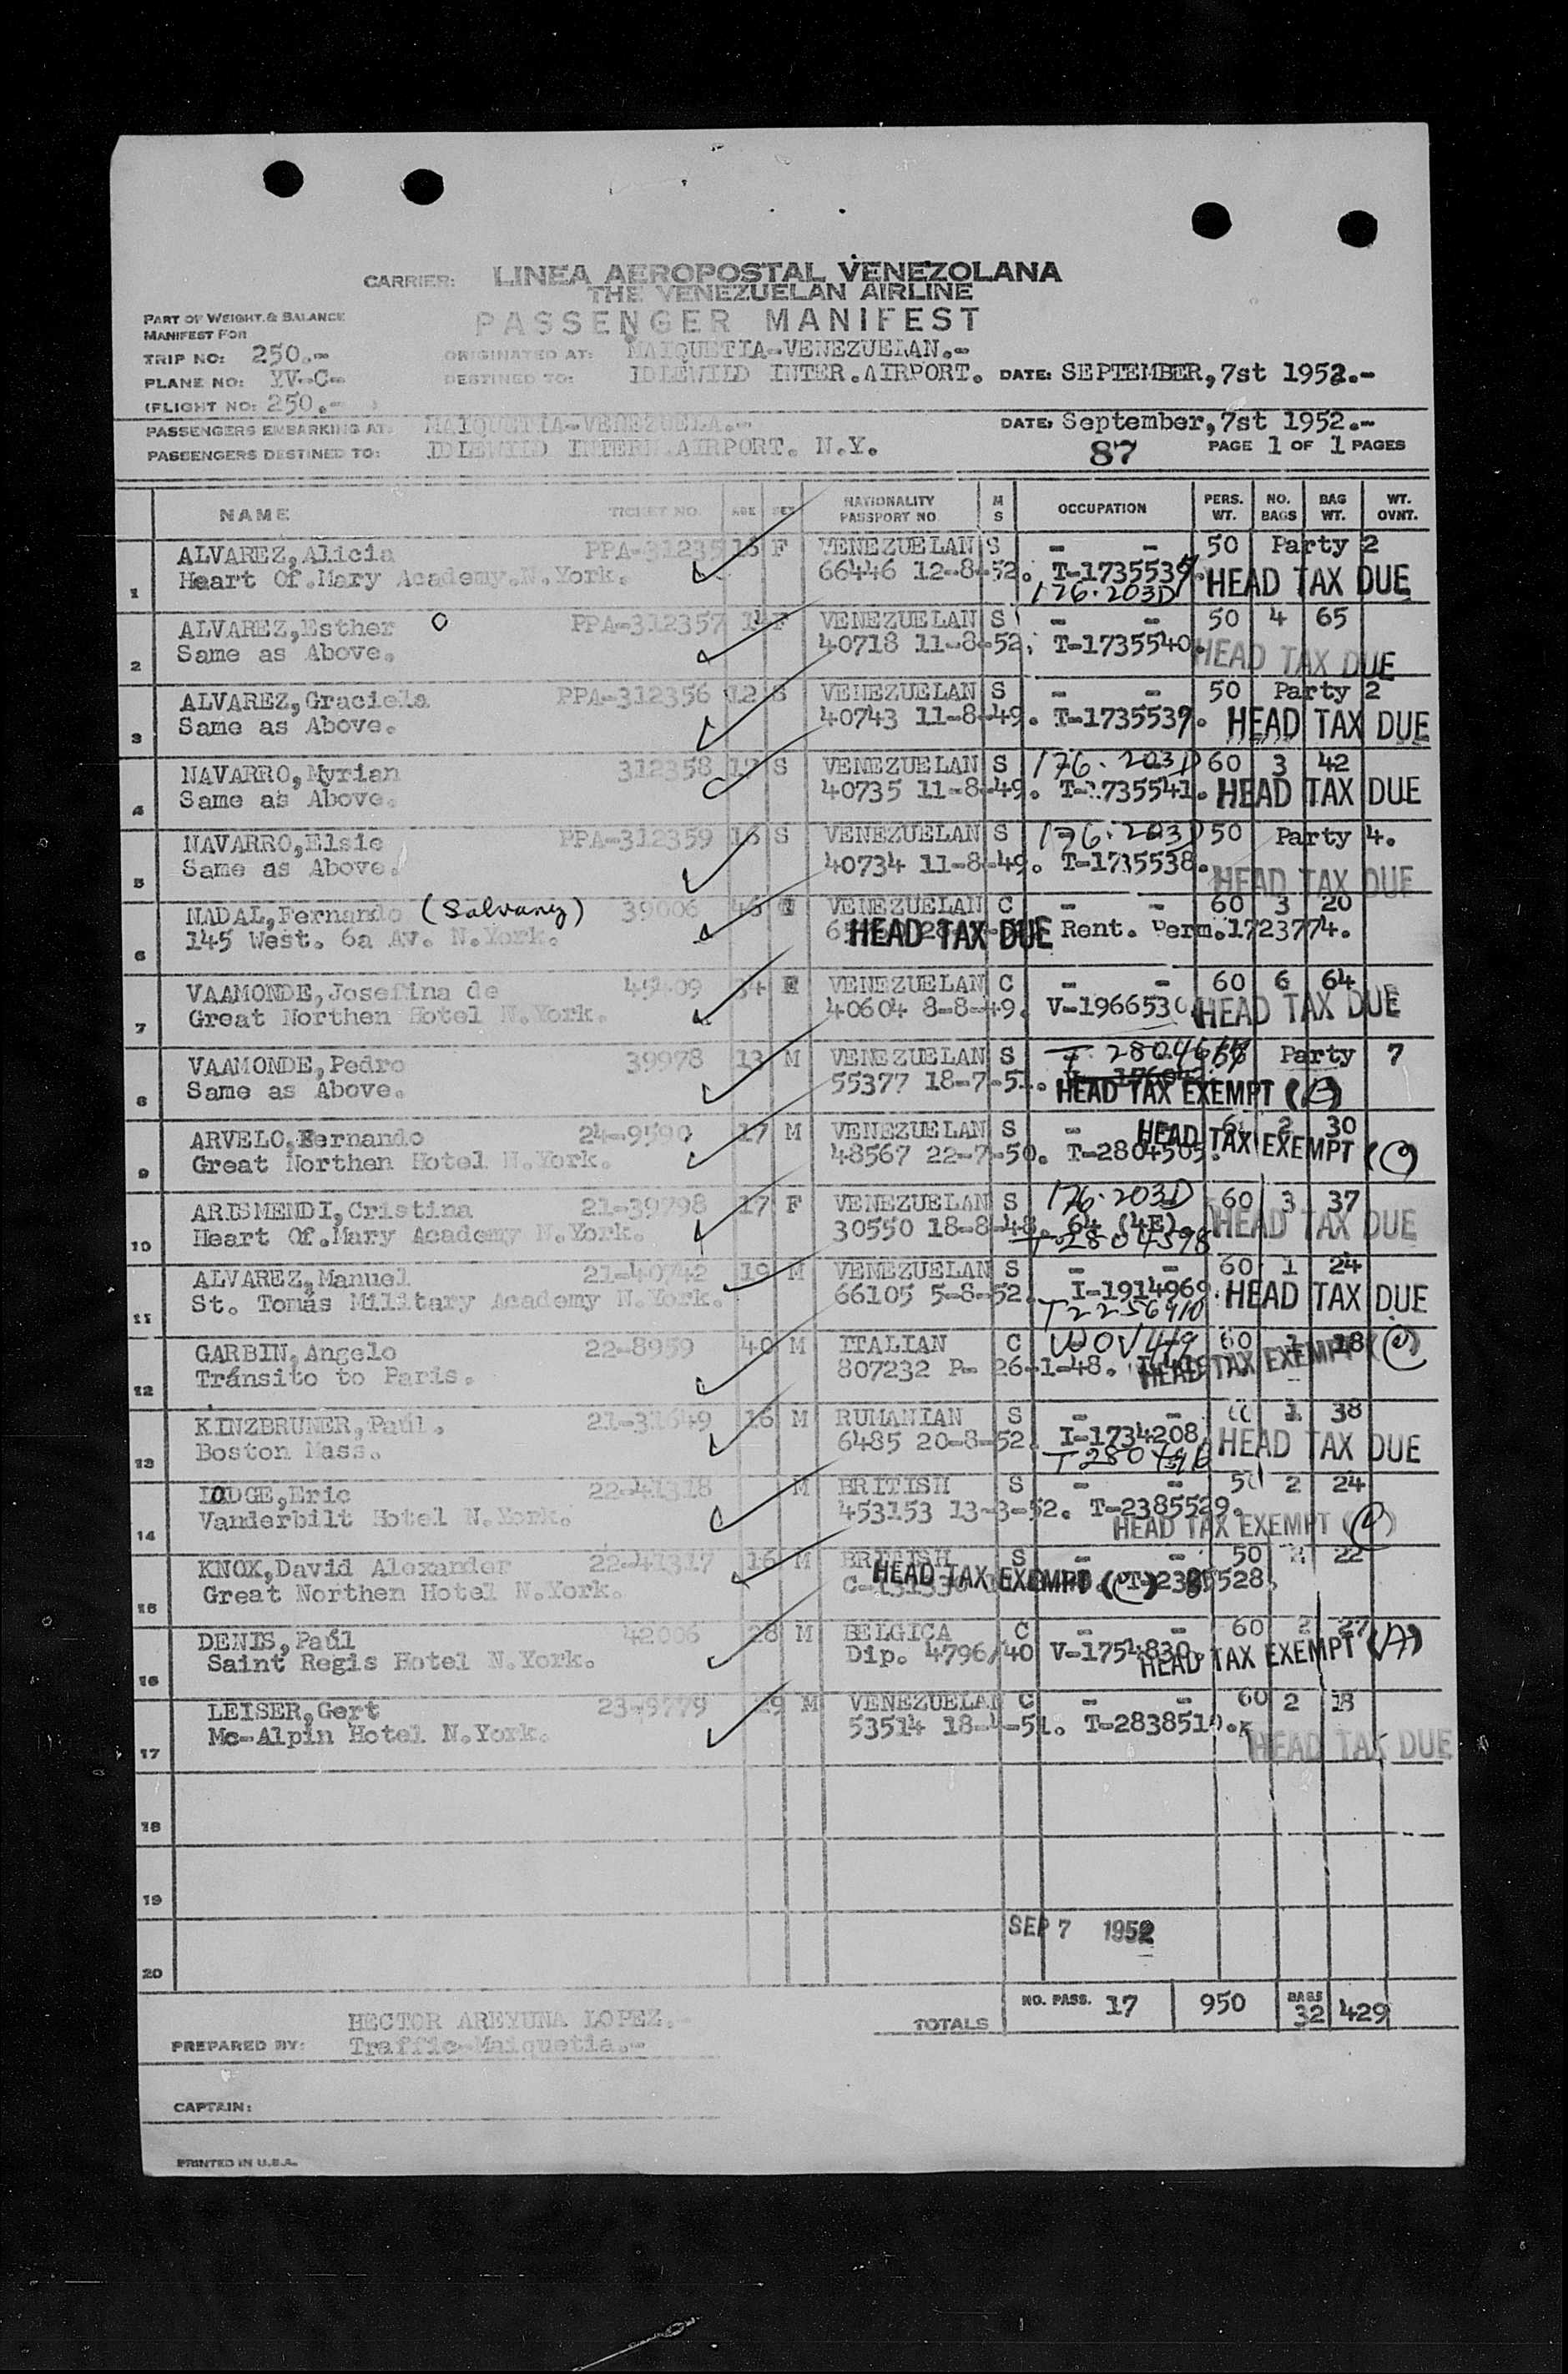 CARRIER: LINEA AEROPOSTAL VENEZOLANA
THE VENEZUELAN AIRLINE
PASSENGER MANIFEST
PART OF WEIGHT & BALANCE
MANIFEST FOR
TRIP NO: 250.-
ORIGINATED AT: MAIQUETIA-VENEZUELAN.-
PLANE NO: YV-C-
DESTINED TO: IDLEWILD INTER.AIRPORT. DATE: SEPTEMBER,7st 1952.-
(FLIGHT NO: 250.- )
PASSENGERS EMBARKING AT: MAIQUETIA-VENEZUELA.- DATE: September,7st 1952.-
PASSENGERS DESTINED TO: IDLEWILD INTERN.AIRPORT. N.Y. 87 PAGE 1 OF 1 PAGES
NAME TICKET NO. AGE SEX NATIONALITY PASSPORT NO M S OCCUPATION PERS. WT. NO. BAGS BAG WT. WT. OVNT.
ALVAREZ,Alicia PPA-31235 F VENEZUELAN S - - 50 Party 2
1 Heart Of.Mary Academy.N.York. 66446 12-8-52. HEAD TAX DUE
176.203D
ALVAREZ,Esther PPA-312357 14 F VENEZUELAN S - - 50 4 65
2 Same as Above. 40718 11-8-52. T-1735540. HEAD TAX DUE
ALVAREZ,Graciela PPA-312356 12 S VENEZUELAN S - - 50 Party 2
3 Same as Above. 40743 11-8-49. T-1735539. HEAD TAX DUE
NAVARRO,Myrian 312358 17 S VENEZUELAN S 176.203D 60 3 42
4 Same as Above. 40735 11-8-49. T-1735541. HEAD TAX DUE
NAVARRO,Elsie PPA-312359 16 S VENEZUELAN S 176.203D 50 Party 4.
5 Same as Above. 40734 11-8-49. T-1735538. HEAD TAX DUE
NADAL,Fernando (Salvany) 39006 46 VENEZUELAN C - - 60 3 20
6 145 West. 6a Av. N.York. HEAD TAX DUE Rent. Perm.1723774.
VAAMONDE,Josefina de 34 VENEZUELAN C - - 60 6 64
7 Great Northen Hotel N.York. 40604 8-8-49. HEAD TAX DUE
VAAMONDE,Pedro 39978 13 M VENEZUELAN S Party 7
8 Same as Above. 55377 18-7-51. HEAD TAX EXEMPT
ARVELO,Fernando 24-9590 17 M VENEZUELAN S - 2 30
9 Great Northen Hotel N.York. 48567 22-7-50. T-2804505. HEAD TAX EXEMPT
ARISMENDI,Cristina 21-39798 17 F VENEZUELAN S 176.203D 60 3 37
10 Heart Of.Mary Academy N.York. 30550 18-8-48. 64 (4E). HEAD TAX DUE
T-2804598
ALVAREZ,Manuel 21-40742 19 M VENEZUELAN S - - 60 1 24
11 St. Tomás Military Academy N.York. 66105 5-8-52. I-1914969. HEAD TAX DUE
GARBIN,Angelo 22-8959 40 M ITALIAN C 60 1 18
12 Tránsito to Paris. 807232 P- 26-1-48. HEAD TAX EXEMPT
KINZBRUNER,Paúl. 21-31649 16 M RUMANIAN S - - 1 38
13 Boston Mass. 6485 20-8-52. I-1734208. HEAD TAX DUE
LODGE,Eric 22-41318 M BRITISH S - - 50 2 24
14 Vanderbilt Hotel N.York. 453153 13-3-52. T-2385529. HEAD TAX EXEMPT
KNOX,David Alexander 22-41317 16 M BRITISH S - - 50 2 22
15 Great Northen Hotel N.York. HEAD TAX EXEMPT T-2385528.
DENIS,Paúl 42006 28 M BELGICA C - - 60 2 27
16 Saint Regis Hotel N.York. Dip. 4796/40 V-1754830. HEAD TAX EXEMPT (A)
LEISER,Gert 23-9779 29 M VENEZUELAN C - - 60 2 18
17 Mc-Alpin Hotel N.York. 53514 18-4-51. T-2838510. HEAD TAX DUE
18
19
SEP 7 1952
20
TOTALS NO. PASS. 17 950 BAGS 32 429
HECTOR AREYUNA LOPEZ.-
PREPARED BY: Traffic-Maiquetia.-
CAPTAIN:
PRINTED IN U.S.A.